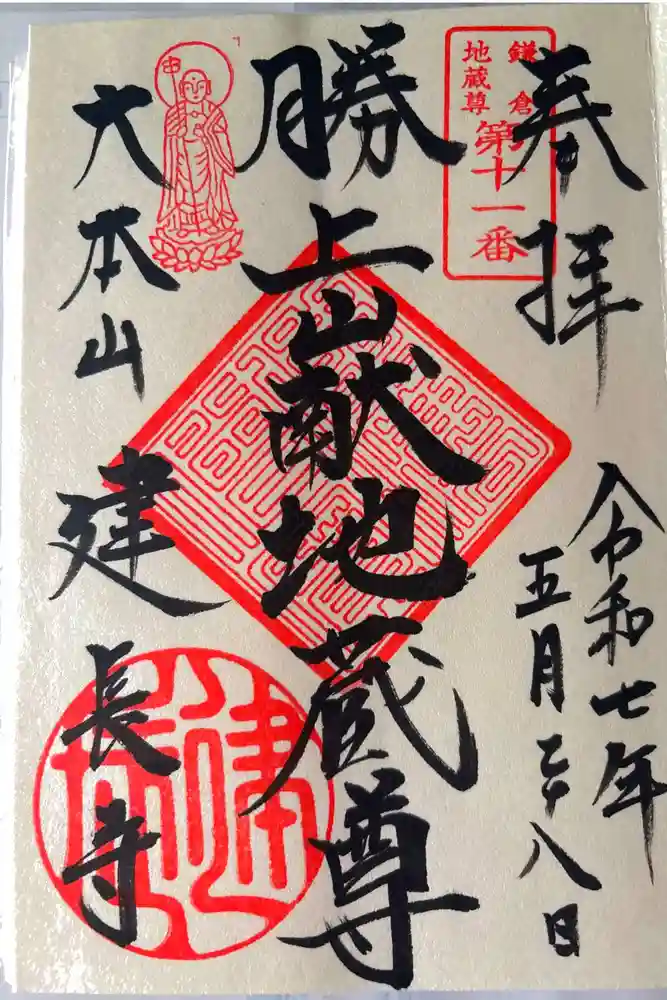 奉拝
令和七年
五月二十八日
鎌倉
地蔵尊
第十一番
勝上山献地蔵尊
大本山
建長寺
建長